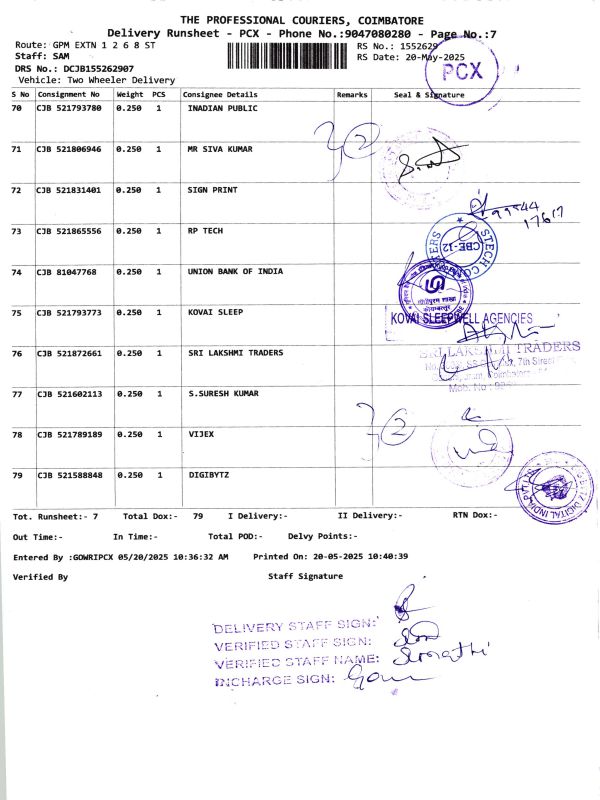 THE PROFESSIONAL COURIERS, COIMBATORE
Delivery Runsheet - PCX - Phone No.:9047080280 - Page No.:7
Route: GPM EXTN 1 2 6 8 ST RS No.: 1552629
Staff: SAM RS Date: 20-May-2025
PCX
DRS No.: DCJB155262907
Vehicle: Two Wheeler Delivery
S No Consignment No Weight PCS Consignee Details Remarks Seal & Signature
70 CJB 521793780 0.250 1 INADIAN PUBLIC
2
71 CJB 521806946 0.250 1 MR SIVA KUMAR
72 CJB 521831401 0.250 1 SIGN PRINT
73 CJB 521865556 0.250 1 RP TECH
CBE-12
74 CJB 81047768 0.250 1 UNION BANK OF INDIA
75 CJB 521793773 0.250 1 KOVAI SLEEP
KOVAI SLEEPWELL AGENCIES
76 CJB 521872661 0.250 1 SRI LAKSHMI TRADERS
SRI LAKSHMI TRADERS
7th Street
Mob. No
77 CJB 521602113 0.250 1 S.SURESH KUMAR
2
78 CJB 521789189 0.250 1 VIJEX
79 CJB 521588848 0.250 1 DIGIBYTZ
DIGITAL INDIA
Tot. Runsheet:- 7 Total Dox:- 79 I Delivery:- II Delivery:- RTN Dox:-
Out Time:- In Time:- Total POD:- Delvy Points:-
Entered By :GOWRIPCX 05/20/2025 10:36:32 AM Printed On: 20-05-2025 10:40:39
Verified By Staff Signature
DELIVERY STAFF SIGN:
VERIFIED STAFF SIGN:
VERIFIED STAFF NAME:
INCHARGE SIGN: